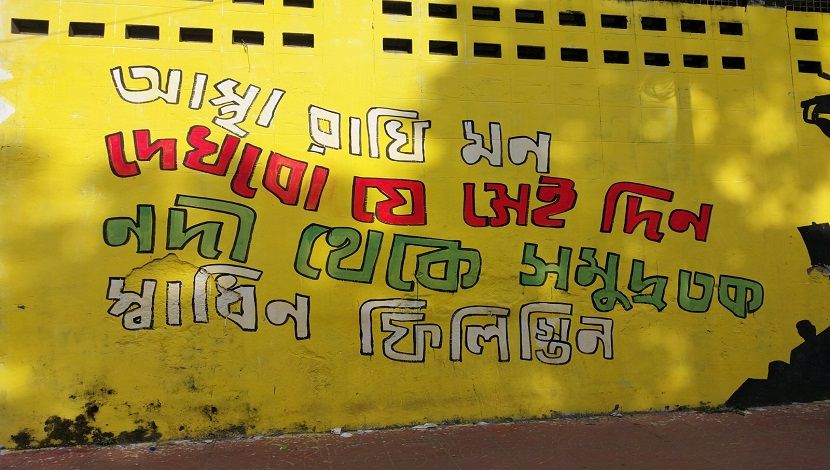 আস্থা রাখি মন
দেখবো যে সেই দিন
নদী থেকে সমুদ্রতক
স্বাধিন ফিলিস্তিন